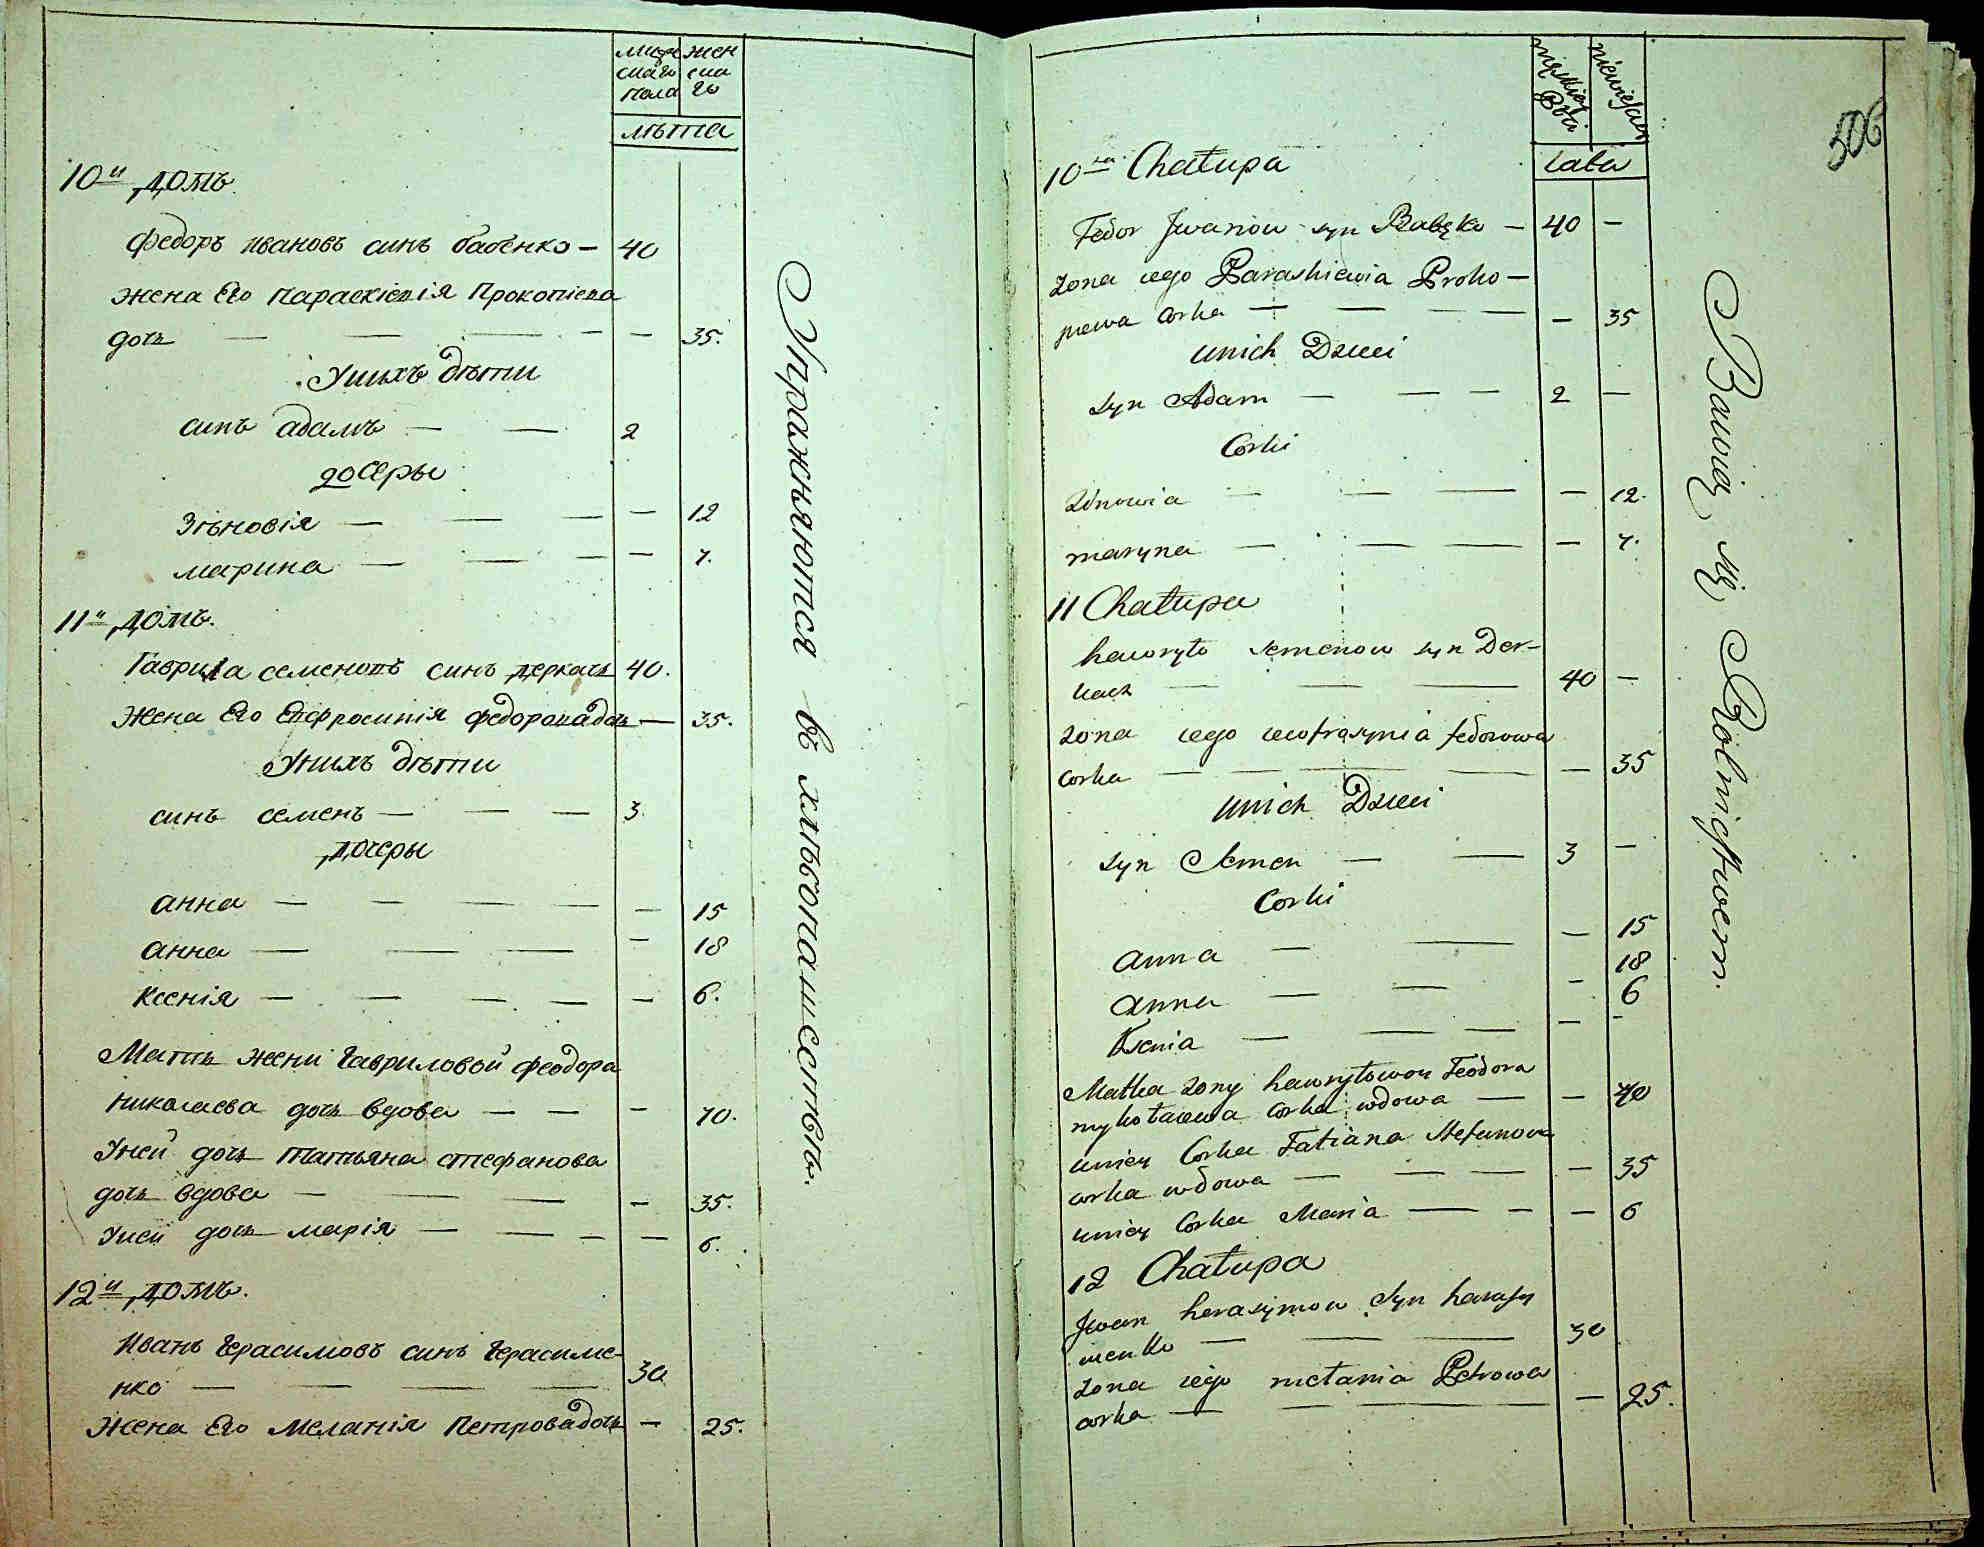 мужескаго пола
женскаго
лѣта
10й домъ.
Федоръ Ивановъ синъ Бабенко — 40
Жена Его Параскіевія Прокопіева
дочь — — — — — — 35.
Унихъ дѣти
синъ адамъ — — 2
дочеры
Зѣновія — — — — 12
марина — — — — 7.
11й домъ.
Гаврила семеновъ синъ деркачь 40.
Жена Его Евфросинія федорова дочь — 35.
Унихъ дѣти
синъ семенъ — — — 3.
дочеры
анна — — — — — 15
анна — — — — 18
Ксенія — — — — — 6.
Мать жени Гавриловой Феодора
Николаева дочь вдова — — — 70.
Уней дочь татьяна стефанова
дочь вдова — — — — 35.
Уней дочь марія — — — — — 6.
12й домъ.
Иванъ Герасимовъ синъ Герасиме-
нко — — — — 30
Жена Его Меланія Петрова дочь — 25.
Упражняются въ хлѣбопашествѣ.
506
męskiey Płci
niewieściey
Lata
10ta Chałupa
Fedor Jwanow syn Babęko — 40 —
zona iego Paraskiewia Proko—
piewa Corka — — — — — 35
unich Dzieci
syn Adam — — — 2 —
Corki
Zinowia — — — — 12.
maryna — — — — 7.
11 Chałupa
hawryło semenow syn Der-
kacz — — — 40 —
zona iego iewfrosynia fedorowa
corka — — — — — — 35
unich Dzieci
syn Semen — — 3 —
Corki
anna — — — 15
anna — — — 18
Ksenia — — — — 6
Matka zony hawryłowey Teodora
mykołaiewa corka wdowa — — 70
uniey Corka Tatiana Stefanowa
corka wdowa — — — — 35
uniey Corka Maria — — — 6
12 Chałupa
Jwan herasymow Syn harasy
menko — — — 30
zona iego mełania Petrowa
corka — — — — 25.
Bawią się Rolnictwem.